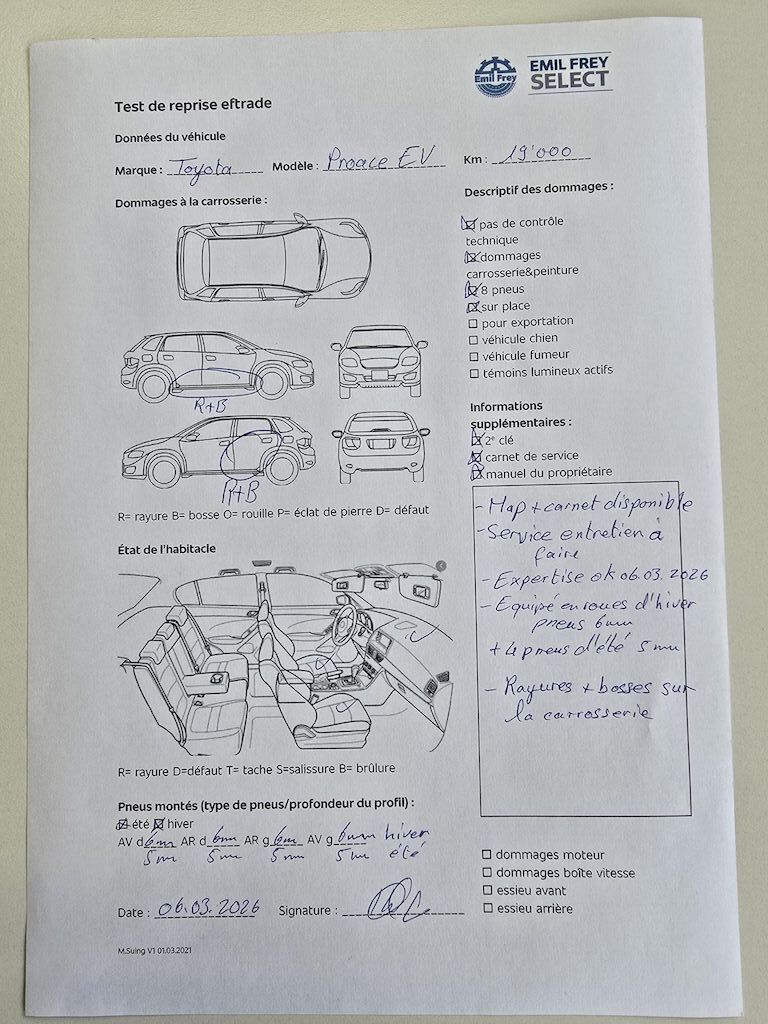 Emil Frey
EMIL FREY
SELECT
Test de reprise eftrade
Données du véhicule
Marque : Toyota Modèle : Proace EV Km : 19'000
Dommages à la carrosserie :
R+B
R+B
R= rayure B= bosse O= rouille P= éclat de pierre D= défaut
État de l'habitacle
R= rayure D=défaut T= tache S=salissure B= brûlure
Pneus montés (type de pneus/profondeur du profil) :
☒ été ☒ hiver
AV d 6mm AR d 6mm AR g 6mm AV g 6mm hiver
5mm 5mm 5mm 5mm été
Date : 06.03.2026 Signature :
M.Suing V1 01.03.2021
Descriptif des dommages :
☒ pas de contrôle
technique
☒ dommages
carrosserie&peinture
☒ 8 pneus
☒ sur place
☐ pour exportation
☐ véhicule chien
☐ véhicule fumeur
☐ témoins lumineux actifs
Informations
supplémentaires :
☒ 2e clé
☒ carnet de service
☒ manuel du propriétaire
- Map + carnet disponible
- Service entretien à
faire
- Expertise ok 06.03.2026
- Equipé en roues d'hiver
pneus 6mm
+ 4 pneus d'été 5mm
- Rayures + bosses sur
la carrosserie
☐ dommages moteur
☐ dommages boîte vitesse
☐ essieu avant
☐ essieu arrière